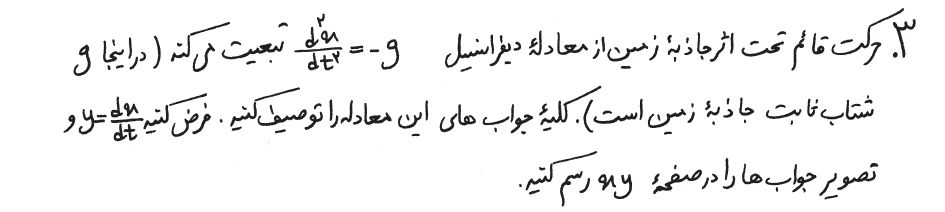 ۳. حرکت قائم تحت اثر جاذبهٔ زمین از معادلهٔ دیفرانسیل d²x/dt² = -g تبعیت می‌کند (در اینجا g
شتاب ثابت جاذبهٔ زمین است). کلیهٔ جواب های این معادله را توصیف کنید. فرض کنید y = dx/dt و
تصویر جواب ها را در صفحهٔ xy رسم کنید.